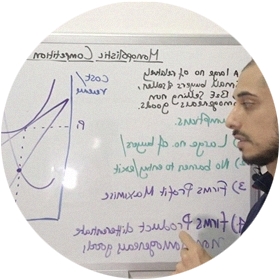 Monopolistic Competition
A large no of relatively
small buyers & sellers,
Selling non
homogeneous
goods.
Cost/
revenue
Large no of buyers/
2) No barriers to entry/exit
3) Firms Profit Maximise
4) Firms Product differentiate
non homogeneous goods,